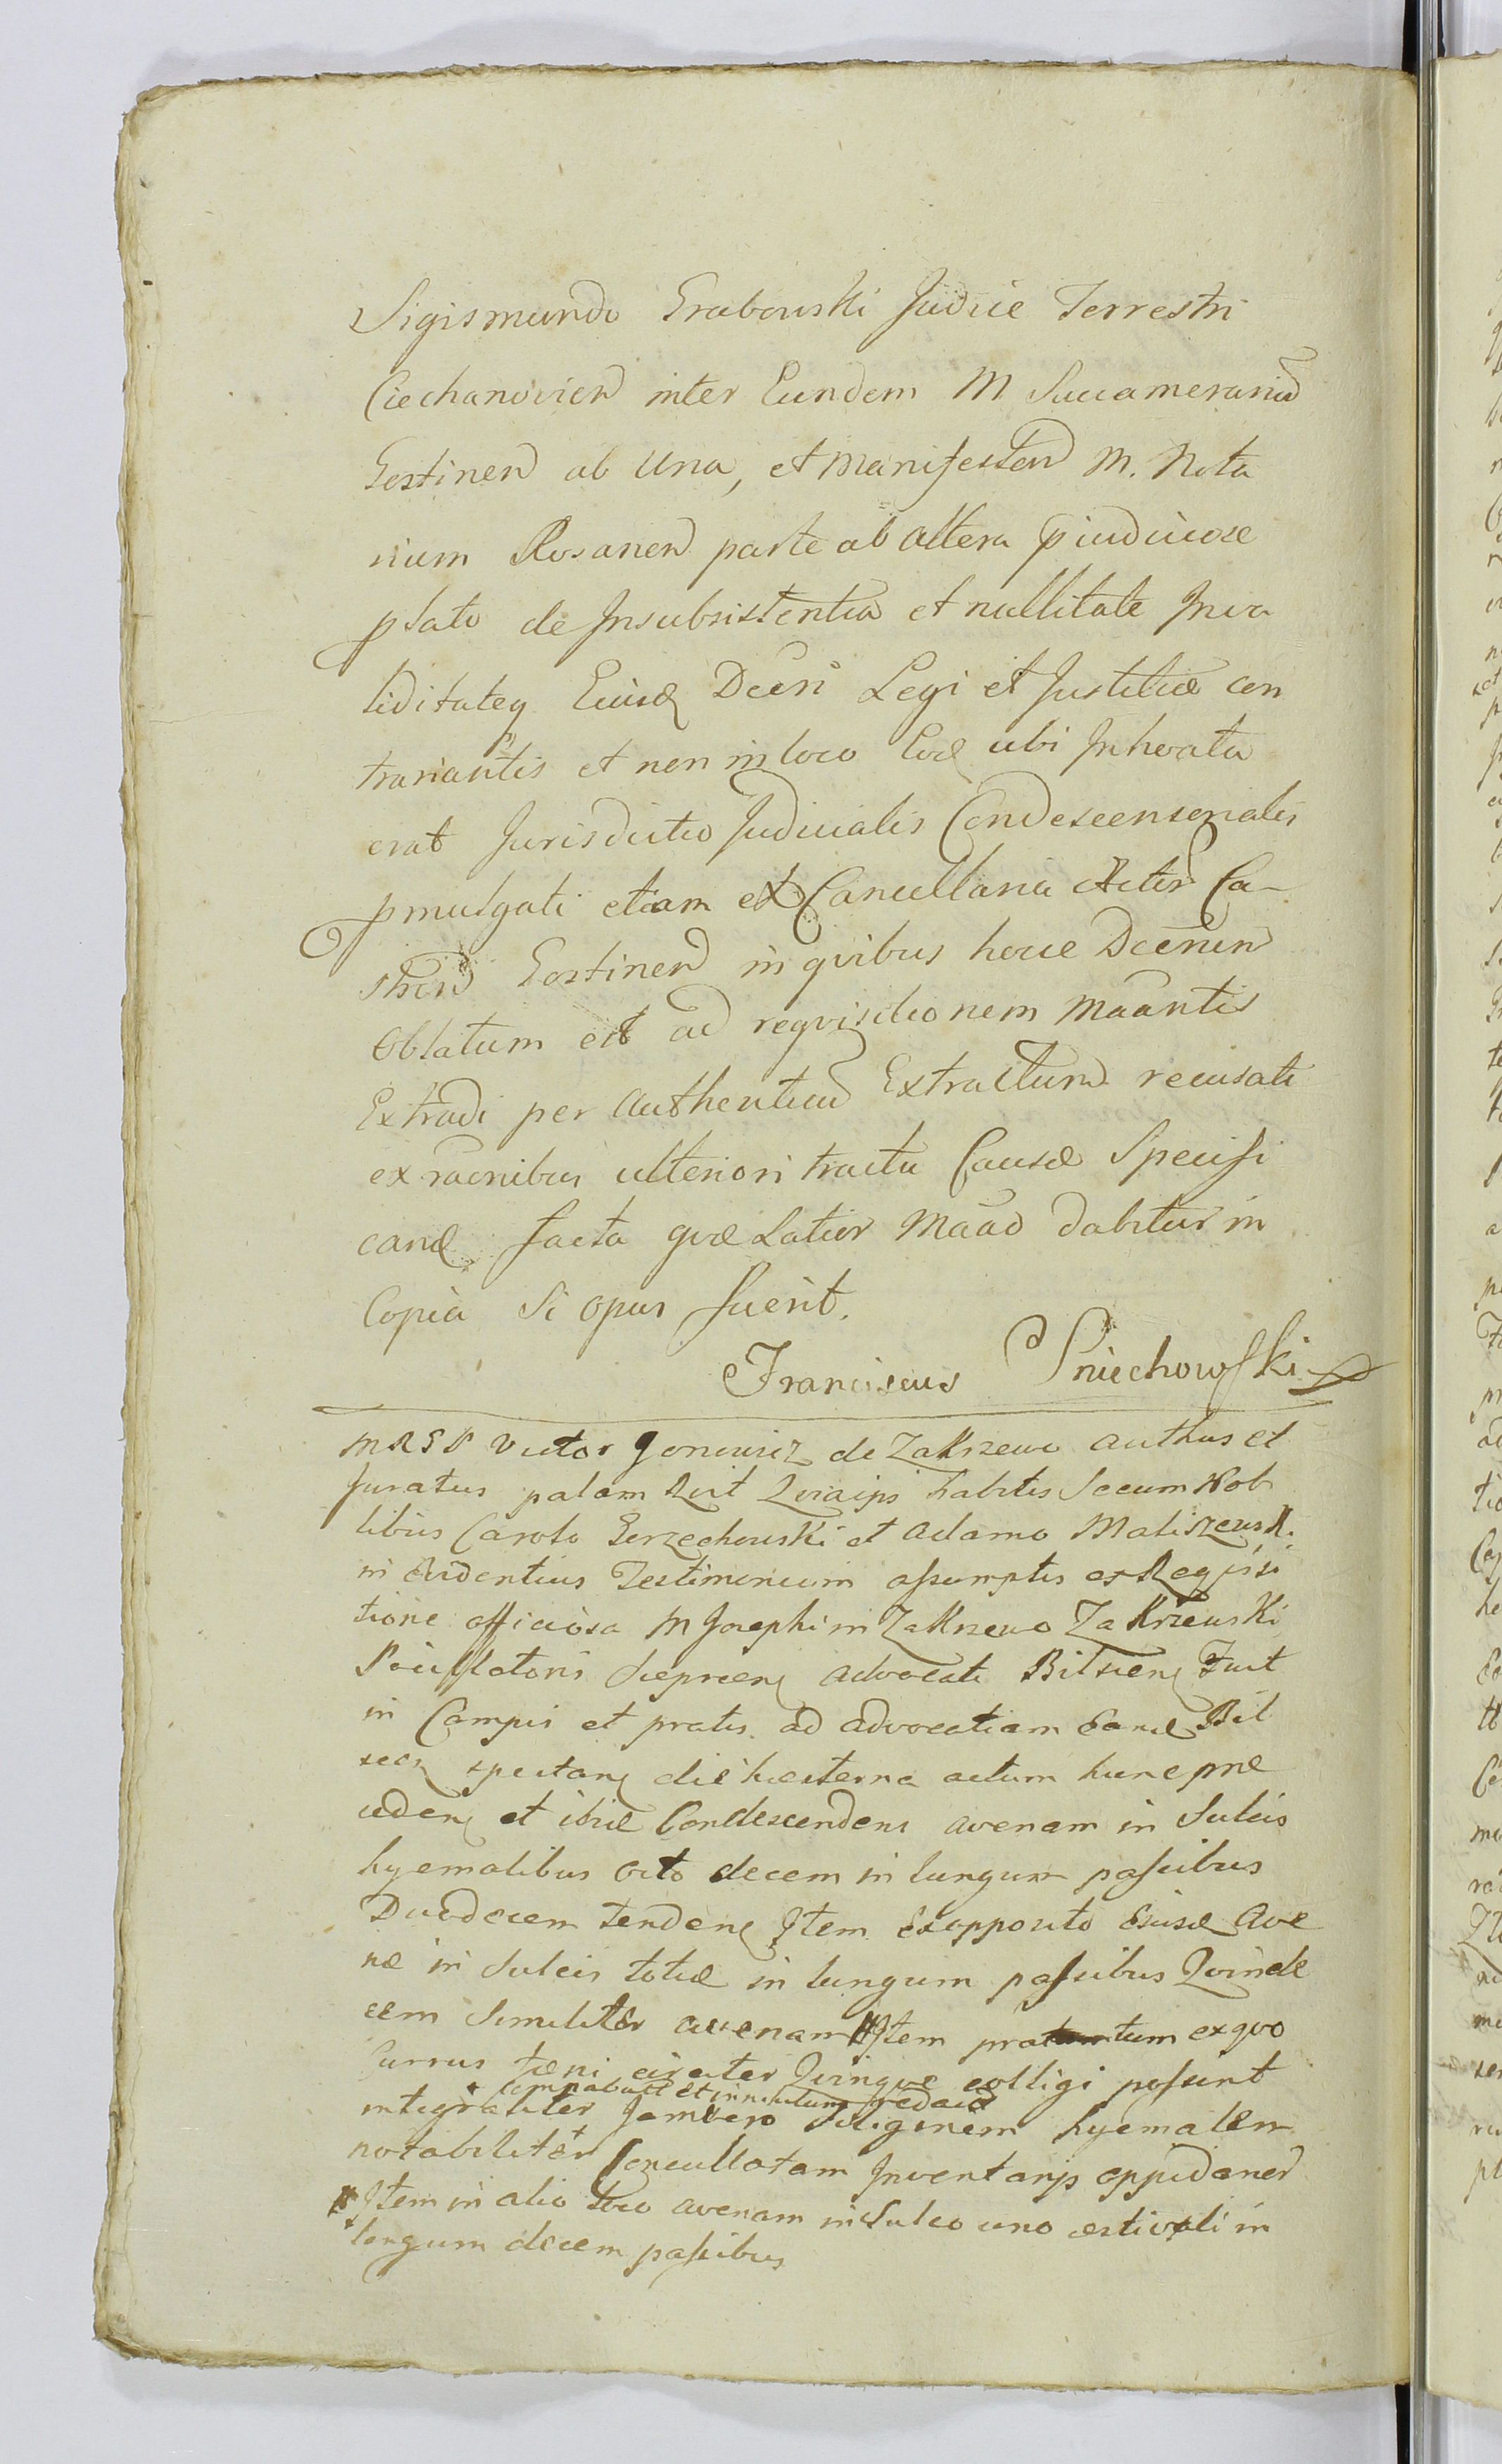 Sigismundo Grabowski Judice Terrestri
Ciechanovien inter Eundem M Succamerariu
Gostinen ab Una, et Manifesten M. Nota
rium Rosanen parte ab altera pjudiciose
plato de Insubsistentia et nullitate Inva
liditateq Eiusd Decri Legi et Justitiæ con
trariantis et non in loco Eod ubi Inhoata
erat Jurisdictio Judicialis Condescensorialis
pmulgati etiam ex Cancellaria Actor Ca-
stren Gostinen in quibus hocce Decrum
Oblatum est ad requisitionem Maantis
Extradi per Authenticu Extractum recusati
ex raonibus ulteriori tractu Causæ Specifi
cand facta quæ Latior Maao dabitur in
Copia Si opus fuerit.
Franciscus Sniechowski
MRGP Victor Jonowicz de Zakrzewo authus et
Juratus palam Rcit Quia ips habitis Secum Nob
libus Carolo Gerzechowski et Adamo Maliszewsk.
in Evidentius Testimonium assumptis ex Reqisi
tione officiosa M Josephi in Zakrzewo Zakrzewski
Pocillatoris Sieprcen advocati Bilscen Fuit
in Campis et pratis ad advocatiam Eand Bil
scen spectan die hesterna actum hunc præ
ceden et ibid Condescendens avenam in Sulcis
hyemalibus octo decem in longum passibus
Duodecem tenden Item Ex opposito Eiusd Ave
næ in Sulcis totid in longum passibus Quinde
cem Similiter avenam Item pratum ex quo
Currus fæni circiter Quinque colligi possunt
integraliter Jam vero Siliginem hyemalem
notabiliter Conculcatam Inventarijs oppidanor
Item in alio loco avenam in Sulco uno æstivali in
longum decem passibus